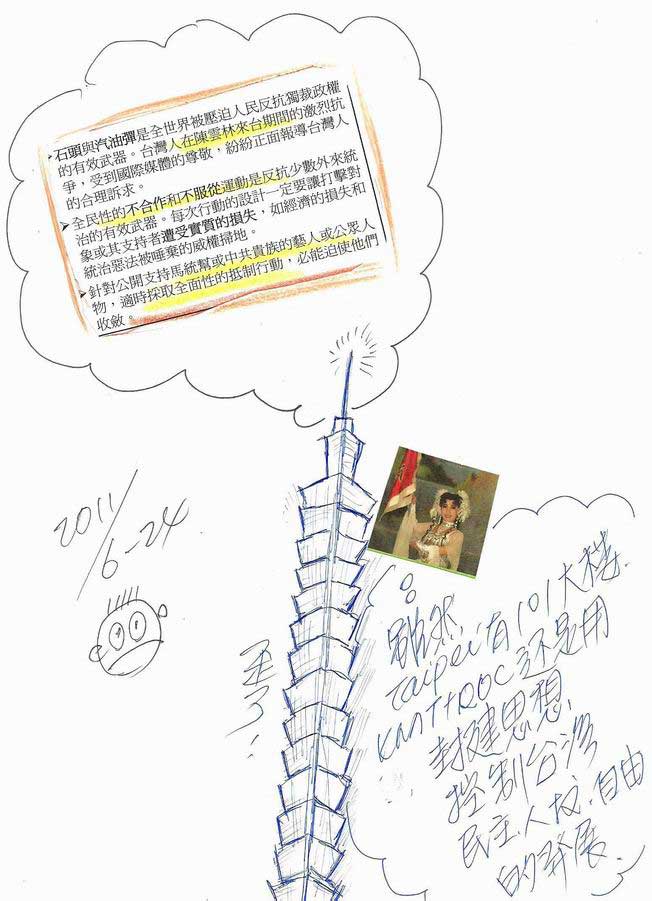 ➤石頭與汽油彈是全世界被壓迫人民反抗獨裁政權
的有效武器。台灣人在陳雲林來台期間的激烈抗
爭，受到國際媒體的尊敬，紛紛正面報導台灣人
的合理訴求。
➤全民性的不合作和不服從運動是反抗少數外來統
治的有效武器。每次行動的設計一定要讓打擊對
象或其支持者遭受實質的損失，如經濟的損失和
統治惡法被唾棄的威權掃地。
➤針對公開支持馬統幫或中共貴族的藝人或公眾人
物，適時採取全面性的抵制行動，必能迫使他們
收斂。
2011/6-24
雖然
taipei有101大樓.
KMT+ROC还是用
封建思想,
控制台湾
民主.人权.自由
的發展.